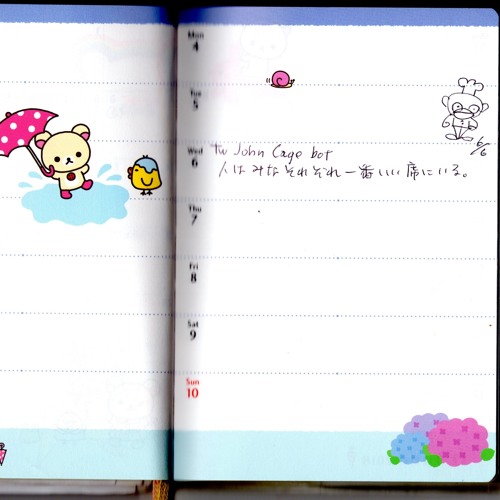 Mon
4
Tue
5
6/6
Wed
6
tw John Cage bot
人はみなそれぞれ一番いい席にいる。
Thu
7
Fri
8
Sat
9
Sun
10